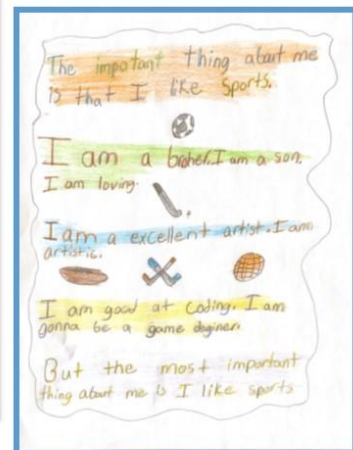 The impotant thing about me
is that I like Sports.
I am a brother. I am a son.
I am loving.
I am a excellent artist. I am
artistic.
I am good at Coding. I am
gonna be a game doginer.
But the most important
thing about me is I like sports